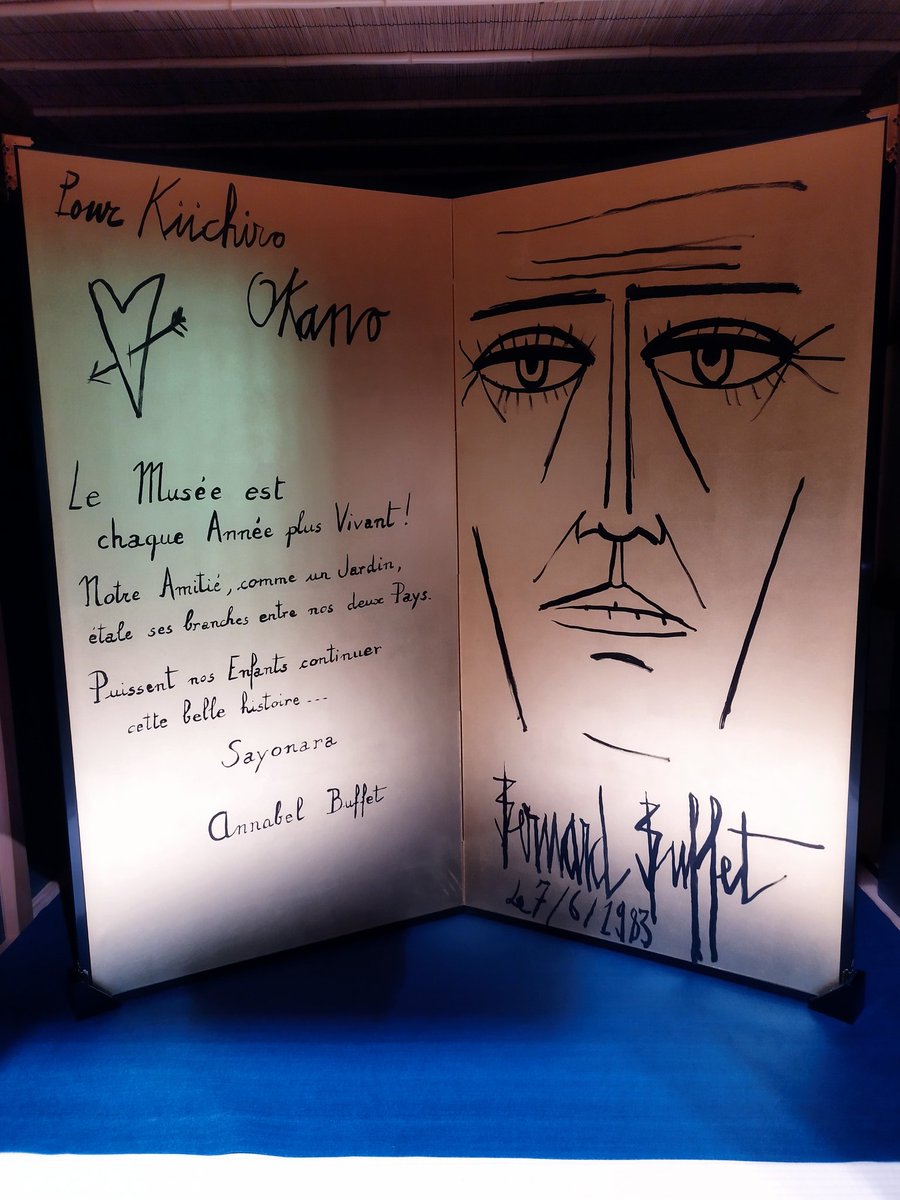 Pour Kiichiro
Okano
Le Musée est
chaque Année plus Vivant !
Notre Amitié, comme un Jardin,
étale ses branches entre nos deux Pays.
Puissent nos Enfants continuer
cette belle histoire ...
Sayonara
Annabel Buffet
Bernard Buffet
Le 7/6/1983